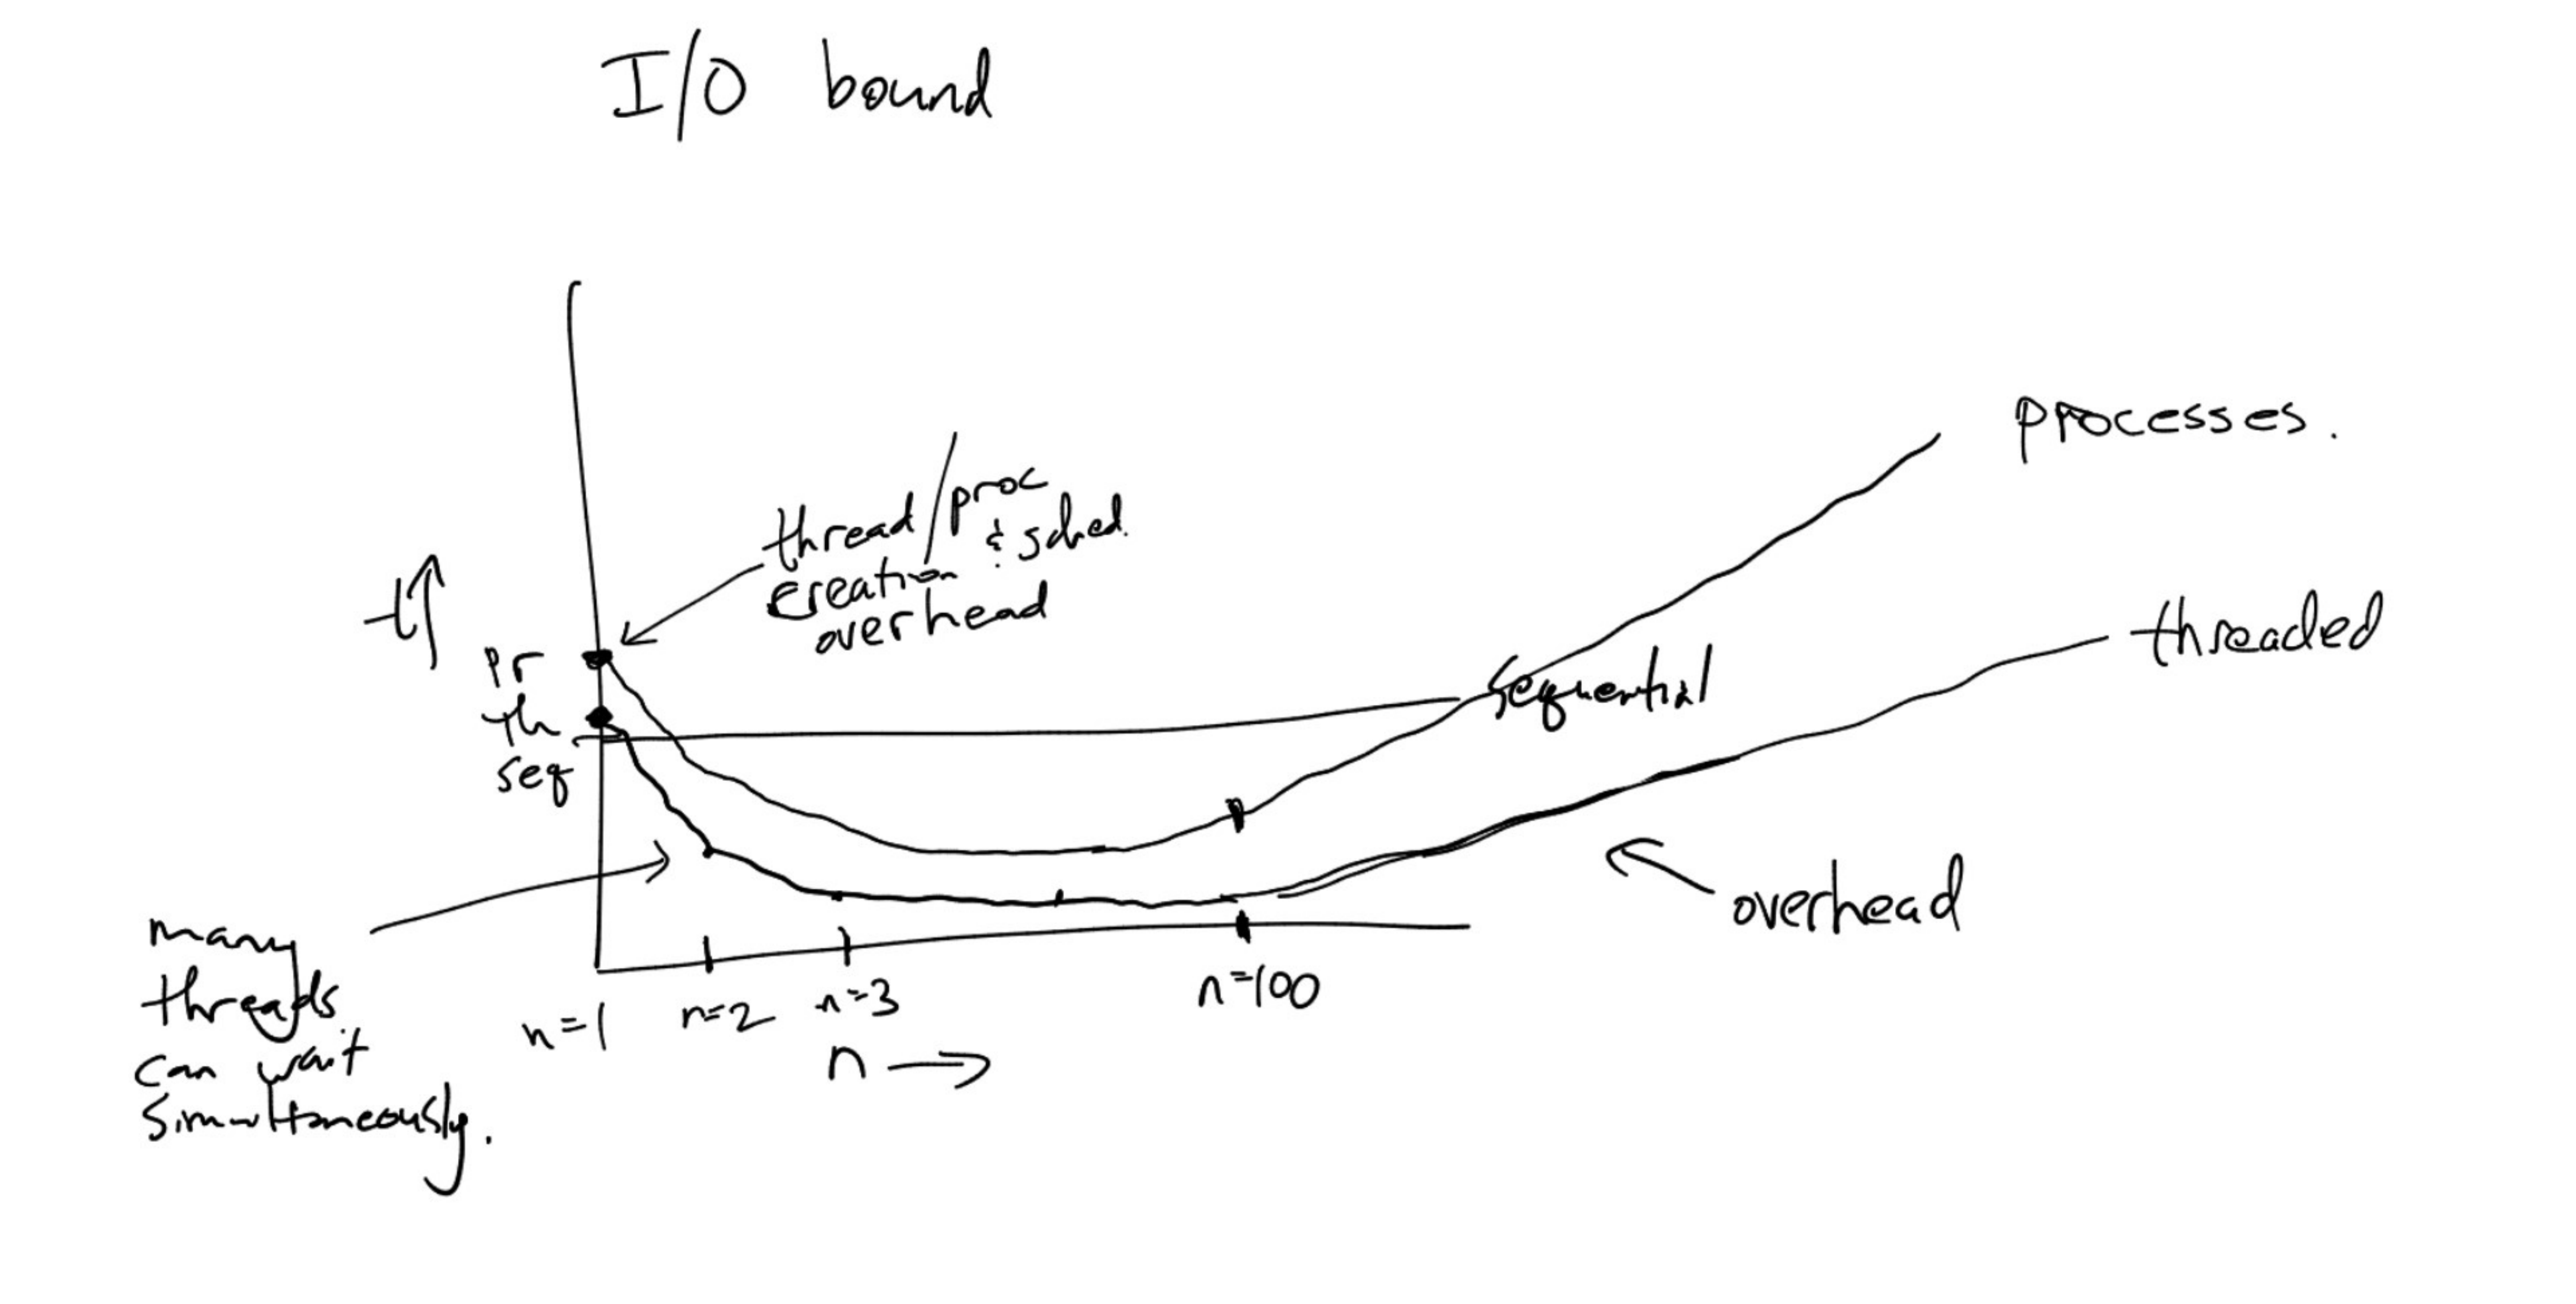 I/O bound
processes.
thread/proc
& sched.
creation
overhead
t↑
threaded
pr
sequential
th
seq
overhead
many
threads
can wait
simultaneously.
n=1
n=2
n=3
n=100
n →